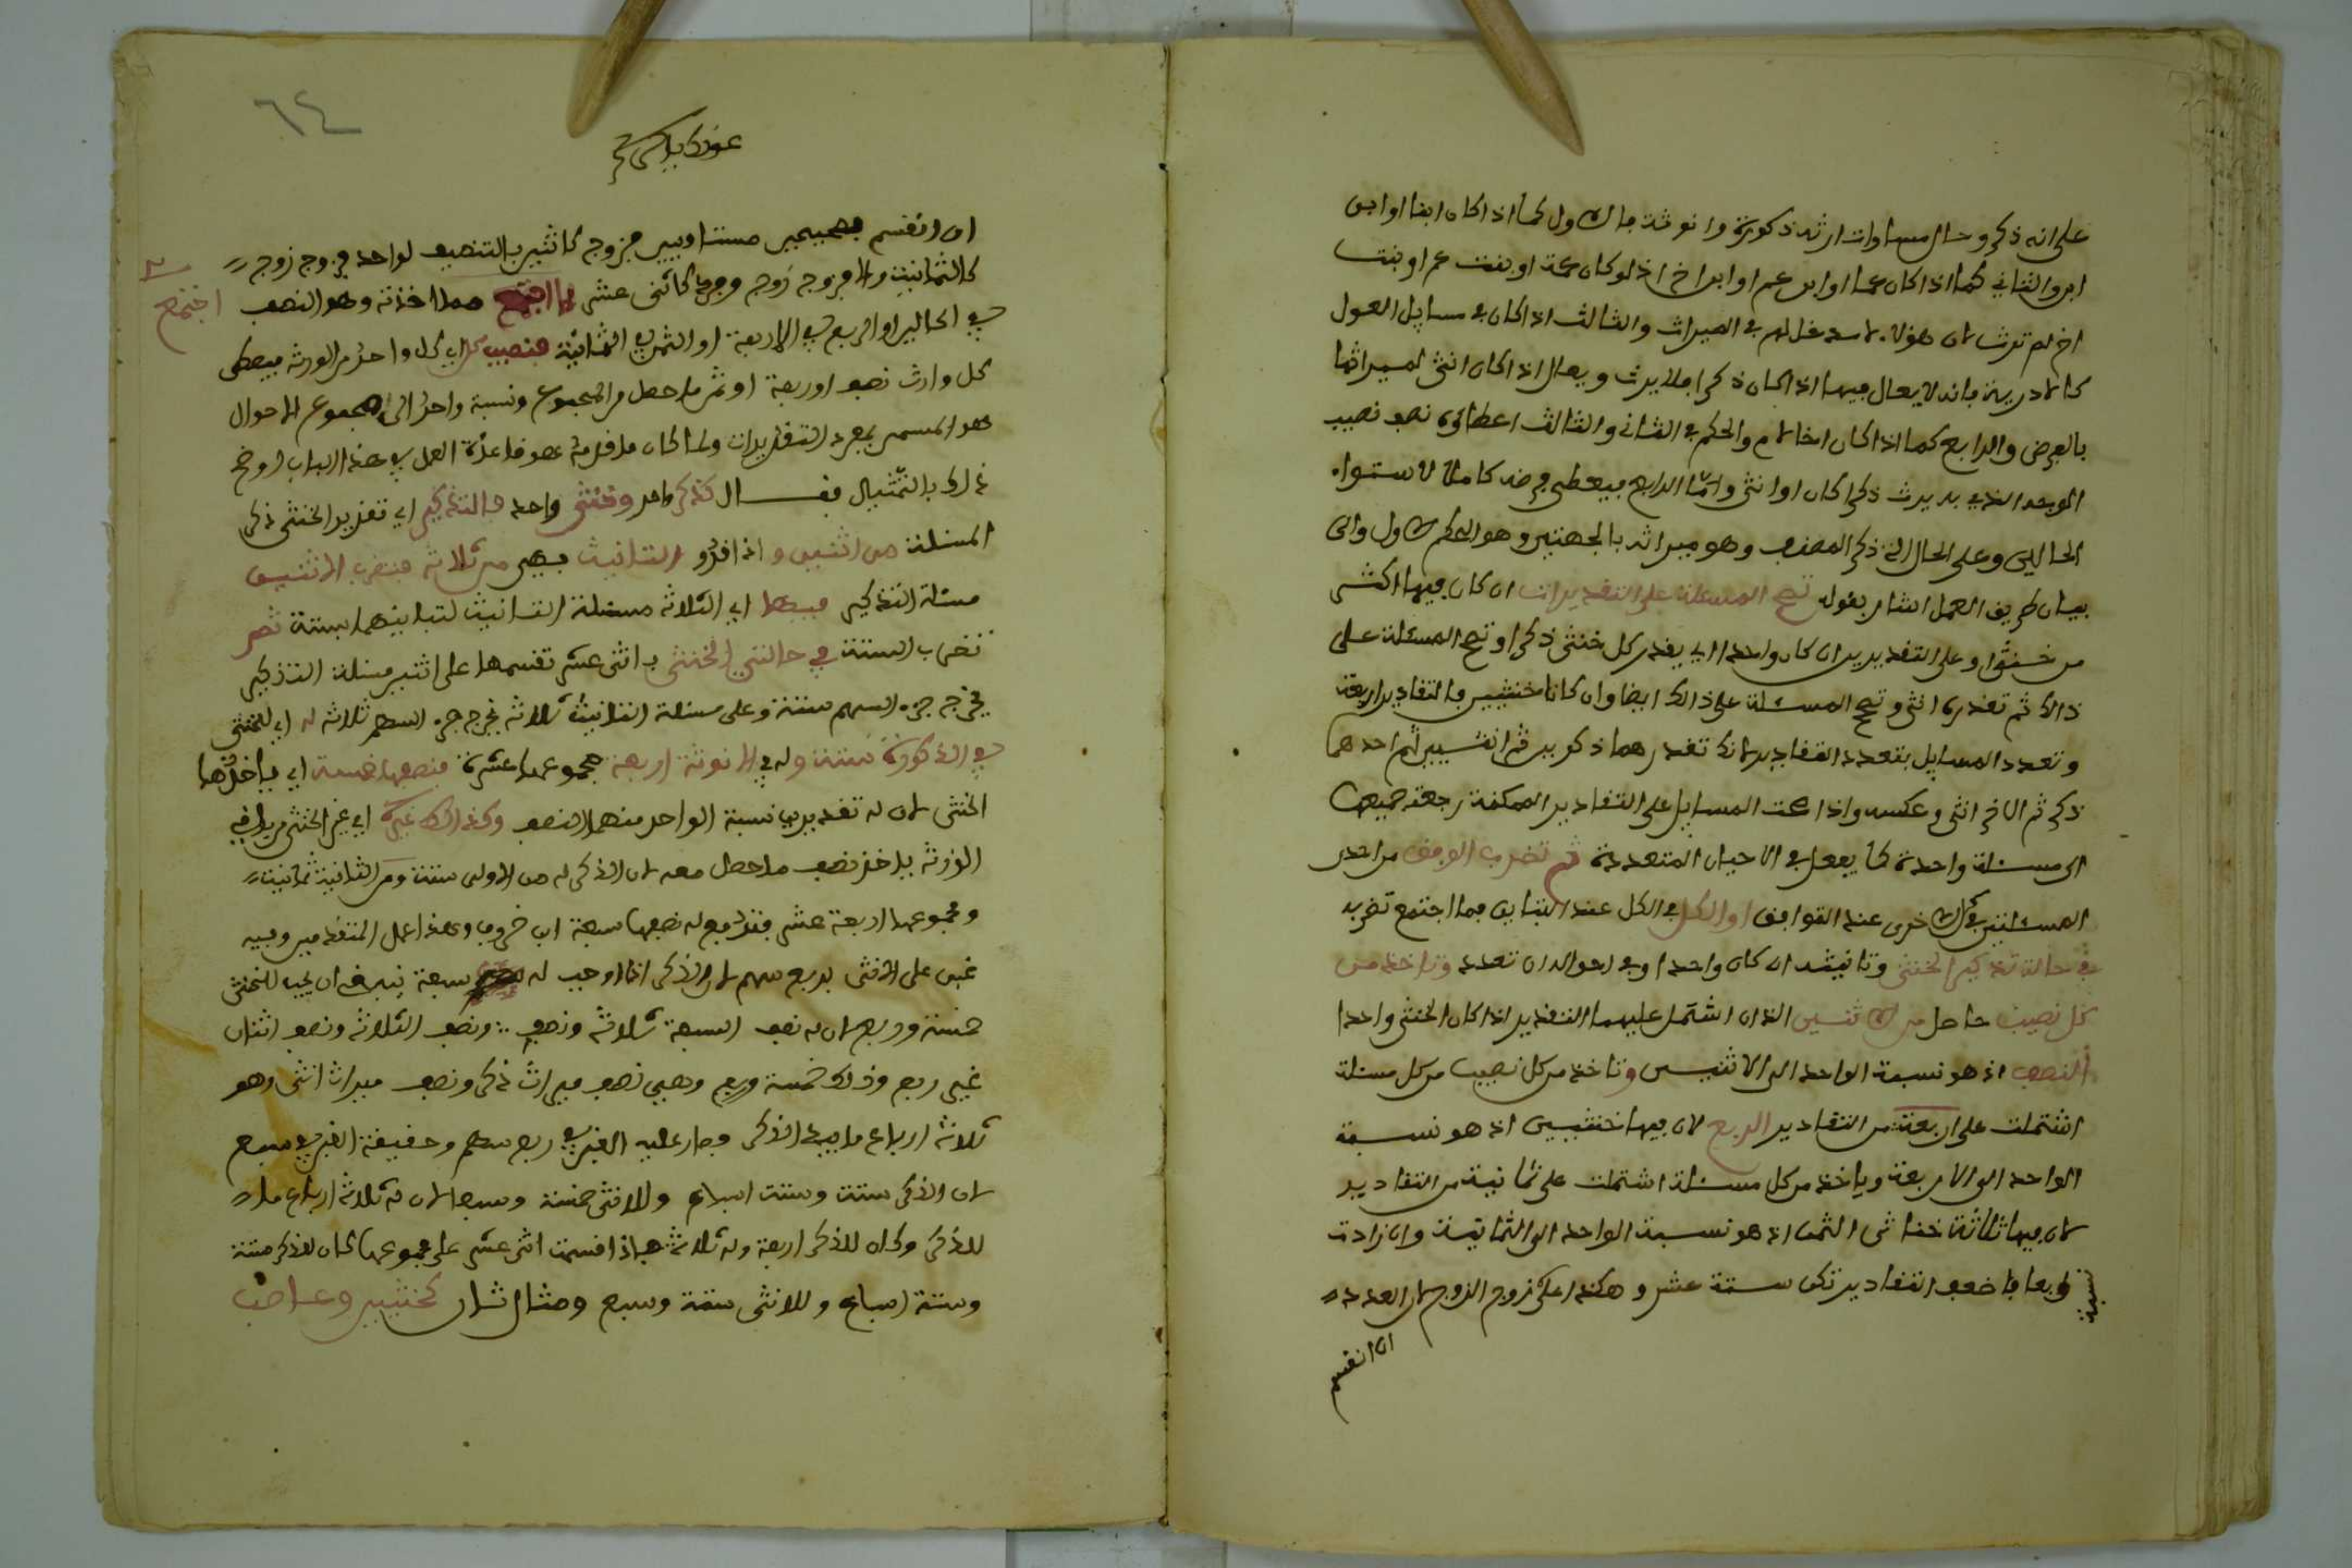 على انه ذكر وحال مساوات ارثه ذكورة وانوثة فالاول كما اذا كان ابنا او ابن
ابن والثاني كما اذا كان عما او ابن عم او ابن اخ اذ لو كان عمة او بنت عم او بنت
اخ لم ترث لان هؤلاء لا مدخل لهم في الميراث والثالث اذا كان في مسايل العول
كالاكدرية فانه لا يعال فيها اذا كان ذكرا فلا يرث ويعال اذا كان انثى لميراثها
بالفرض والرابع كما اذا كان اخا لام والحكم في الثاني والثالث اعطاؤه نصف نصيب
الموجه الذي به يرث ذكرا كان او انثى واما الرابع فيعطى فرضه كاملا لاستواء
الحالين وعلى الحال الذي ذكر المصنف وهو ميراثه بالجهتين وهو الحكم الاول والى
بيان طريق العمل اشار بقوله تصح المسئلة على التقديرات ان كان فيها اكثر
من خنثى او على التقديرين ان كان واحدا اي يقدر كل خنثى ذكرا وتصح المسئلة على
ذالك ثم تقدره انثى وتصح المسئلة على ذالك ايضا وان كانا خنثيين فالتقادير اربعة
وتعدد المسايل بتعدد التقادير لانك تقدرهما ذكرين ثم انثيين ثم احدهما
ذكر ثم الاخر انثى وعكسه واذا صحت المسايل على التقادير الممكنة رجعت جميعها
الى مسئلة واحدة كما يفعل في الاحيان المتعددة ثم تضرب الوفق من احدى
المسئلتين في الاخرى عند التوافق او الكل في الكل عند التباين فما اجتمع تضربه
في حالة تذكير الخنثى وتانيثه ان كان واحدا وفي احواله ان تعدد وتاخذ من
كل نصيب حاصل من الاثنين الذان اشتمل عليهما التقدير اذا كان الخنثى واحدا
النصف اذ هو نسبة الواحد الى الاثنين وتاخذ من كل نصيب من كل مسئلة
اشتملت على اربعة من التقادير الربع لان فيها خنثيين اذ هو نسبة
الواحد الى الاربعة وياخذ من كل مسئلة اشتملت على ثمانية من التقادير
لان فيها ثلاثة خناثى الثمن اذ هو نسبة الواحد الى الثمانية وان زادت
رابعا فاضعف التقادير تكن ستة عشر وهكذا على زوج الزوج لان العدد
ان انقسم
٦٤
ان انقسم بصحيحين متساويين فزوج كاثنين بالتنصيف لواحد فزوج زوج
كالثمانية والا فزوج زوج وفرد كاثنى عشر فما اجتمع مما اخذته وهو النصف
اجتمع
في الحالين او الربع في الاربعة او الثمن في الثمانية فنصيب كل اي كل واحد من الورثة فيعطى
كل وارث نصف او ربعة او ثمن ما حصل من المجموع ونسبة واحد الى مجموع الاحوال
هو المسمى بمفرد التقديرات ولما كان ما قدمه هو قاعدة العمل في هذا الباب اوضح
ذلك بالتمثيل فقال كذكر واحد وخنثى واحد فالتذكير اي تقدير الخنثى ذكر
المسئلة من اثنين واذا قدر التانيث فهي من ثلاثة فتضرب الاثنين
مسئلة التذكير فيها اي الثلاثة مسئلة التانيث لتباينهما بستة ثم
تضرب الستة في حالتي الخنثى باثنى عشر تقسمها على اثنين مسئلة التذكير
يخرج جزء السهم ستة وعلى مسئلة التانيث ثلاثة يخرج جزء السهم ثلاثة له اي للخنثى
في الذكورة ستة وله في الانوثة اربعة مجموعها عشرة فنصفها خمسة اي ياخذها
الخنثى لان له تقديرين نسبة الواحد منهما النصف وكذالك غيره اي غير الخنثى من باقي
الورثة ياخذ نصف ما حصل معه لان الذكر له من الاولى ستة ومن الثانية ثمانية
ومجموعها اربعة عشر فتدفع له نصفها سبعة ابن خروف وهذا عمل المتقدمين وفيه
غبن على الانثى بربع سهم لان الذكر اذا وجب له سبعة ينبغي ان يجب للخنثى
خمسة وربع لان له نصف السبعة ثلاثة ونصف ونصف الثلاثة ونصف اثنان
غير ربع وذلك خمسة وربع وهي نصف ميراث ذكر ونصف ميراث انثى وهو
ثلاثة ارباع ما بيد الذكر فصار عليه الغبن في ربع سهم وحقيقة الغبن في سبع
لان الذكر ستة وستة اسباع وللانثى خمسة وسبعا لان له ثلاثة ارباع ما
للذكر وكان للذكر اربعة وله ثلاثة فاذا قسمت اثنى عشر على مجموعها كان للذكر ستة
وستة اسباع وللانثى ستة وسبع ومثال ثان كخنثيين وعاصب